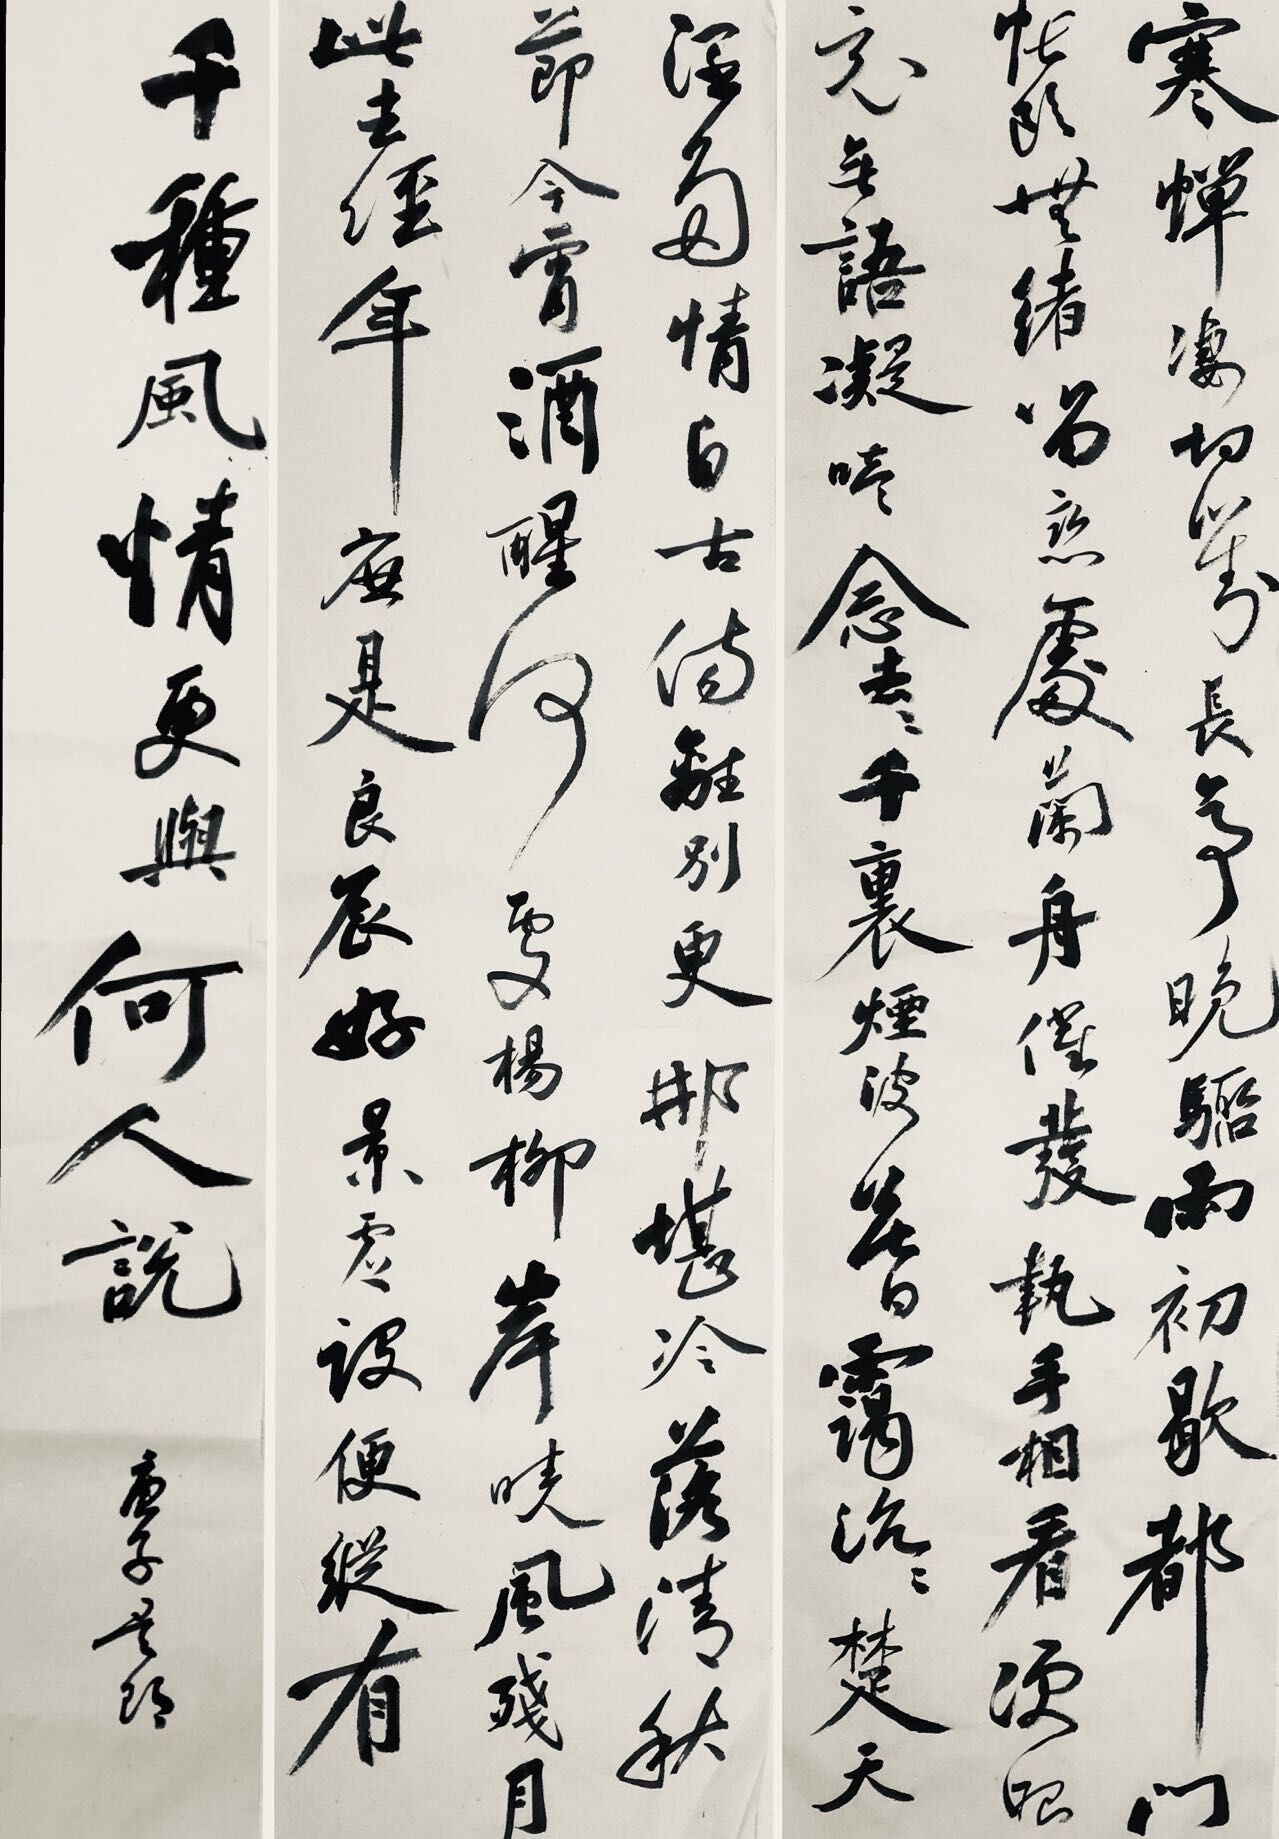 寒蟬凄切對長亭晚驟雨初歇都門
帳飲無緒留恋處蘭舟催發執手相看淚眼
竟無語凝噎念去々千裏煙波暮靄沉々楚天
闊多情自古傷離別更那堪冷落清秋
節今宵酒醒何處楊柳岸曉風殘月
此去經年應是良辰好景虛設便縱有
千種風情更與何人說
庚子